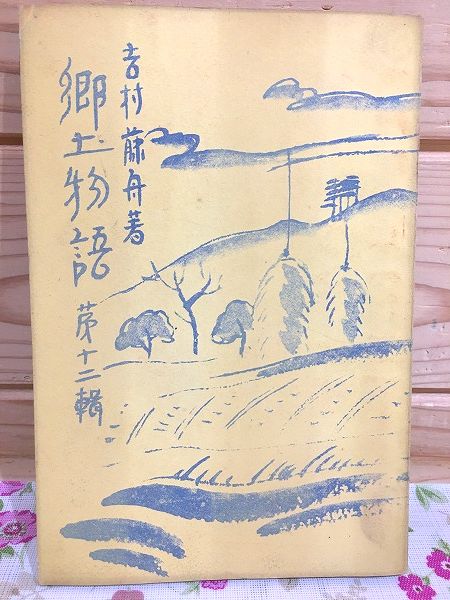 吉村藤舟著
郷土物語 第十二輯